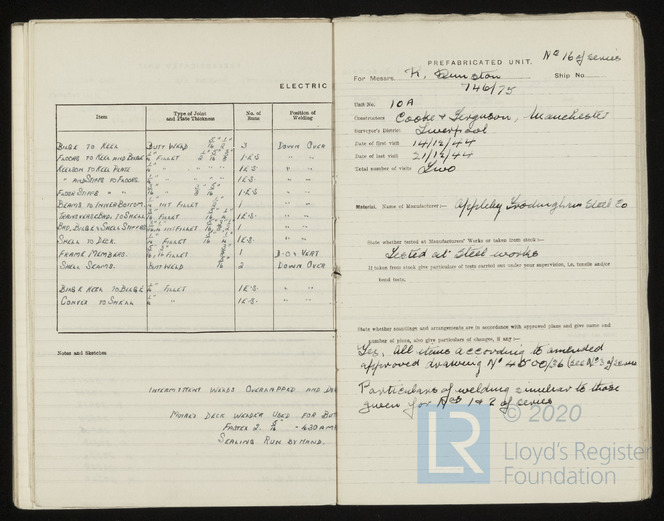 ELECTRIC
Item
Type of Joint
and Plate Thickness
No. of
Runs
Position of
Welding
BILGE TO KEEL BUTT WELD 3 DOWN OVER
FLOORS TO KEEL AND BILGE FILLET 1 E.S. " "
KEELSON TO KEEL PLATE " 1 E.S. " "
" AND STIFFS TO FLOORS. " 1 E.S. " "
FLOOR STIFFS " " " "
BEAMS TO INNER BOTTOM. INT FILLET 1 " "
TRANSVERSE BHD. TO SHELL FILLET 1 E.S. " "
BHD, BILGE & SHELL STIFFS INT FILLET 1 " "
SHELL TO DECK. FILLET 1 E.S. " "
FRAME MEMBERS. FILLET 1 D.O & VERT
SHELL SEAMS. BUTT WELD 2 DOWN OVER
BILGE KEEL TO BILGE FILLET 1 E.S. " "
TO SHELL " 1 E.S. " "
Notes and Sketches
INTERMITTENT WELDS OVERLAPPED AND
DECK WELDER USED FOR
SEALING RUN BY HAND.
No 16 of series
PREFABRICATED UNIT.
For Messrs. R. Dunston Ship No.
746/75
Unit No. 10A
Constructors Cooke & Ferguson, Manchester
Surveyor's District Liverpool
Date of first visit 14/12/44
Date of last visit 21/12/44
Total number of visits Two
Material. Name of Manufacturer:— Appleby Frodingham Steel Co
State whether tested at Manufacturers' Works or taken from stock:—
Tested at Steel works
If taken from stock give particulars of tests carried out under your supervision, i.e. tensile and/or
bend tests.
State whether scantlings and arrangements are in accordance with approved plans and give name and
number of plans, also give particulars of changes, if any:—
Yes, all items according to amended
approved drawing No 4500/36 (see No 3 of series
Particulars of welding similar to those
given for Nos 1 & 2 of series
© 2020
LR
Lloyd's Register
Foundation